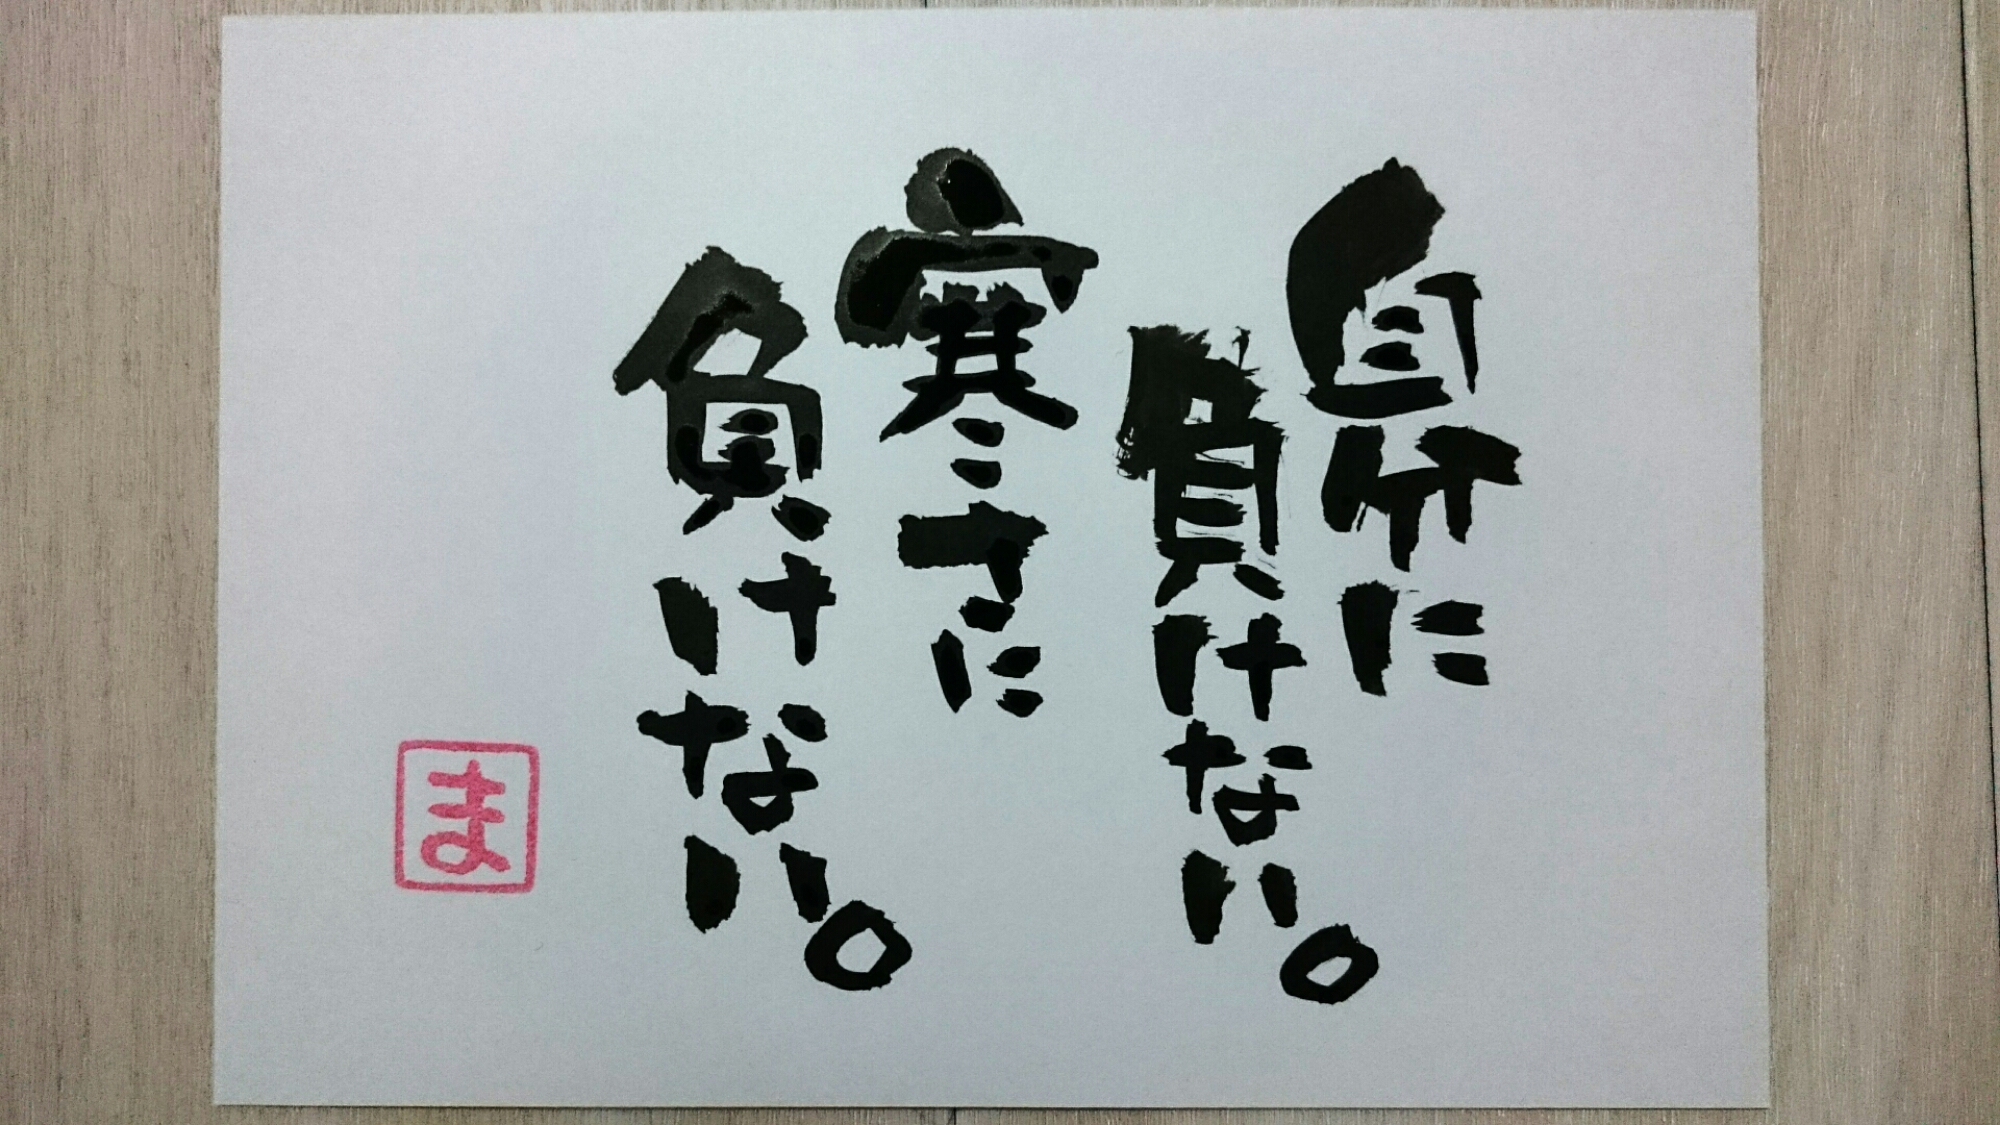 自分に
負けない。
寒さに
負けない。
ま